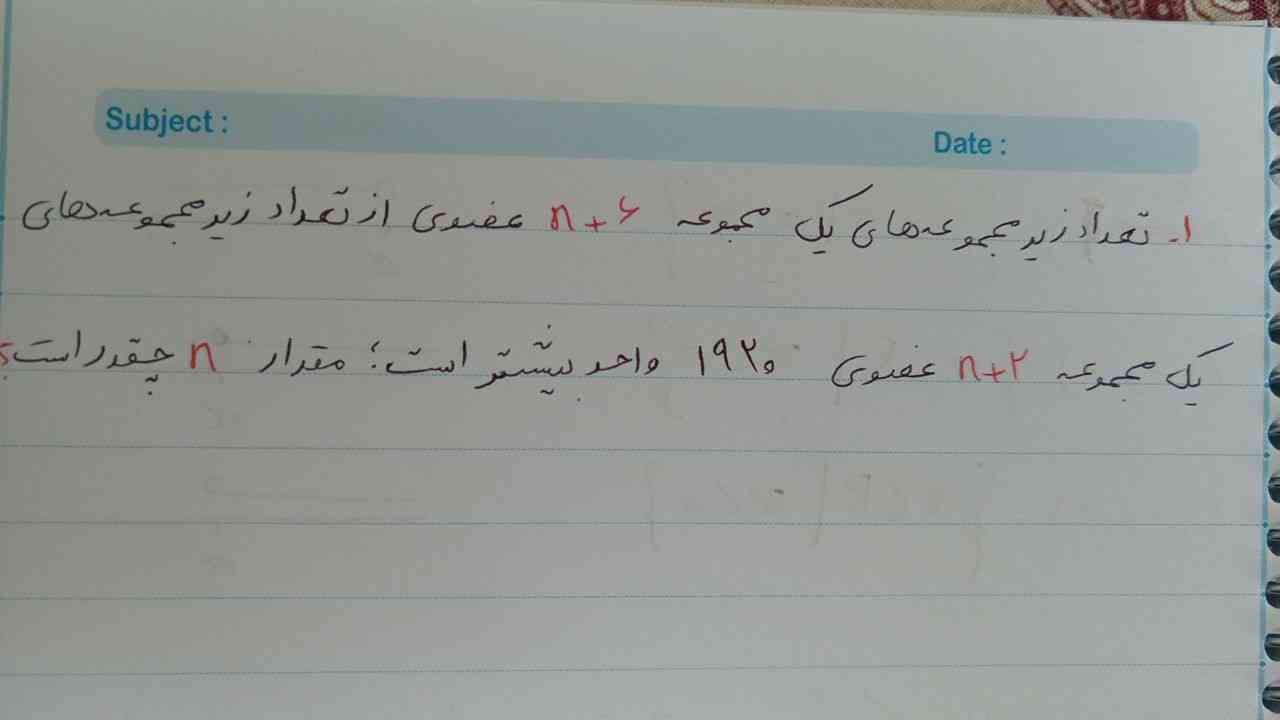 Subject :
Date :
۱- تعداد زیرمجموعه‌های یک مجموعه n+۶ عضوی از تعداد زیرمجموعه‌های
یک مجموعه n+۲ عضوی ۱۹۲۰ واحد بیشتر است؛ مقدار n چقدر است؟